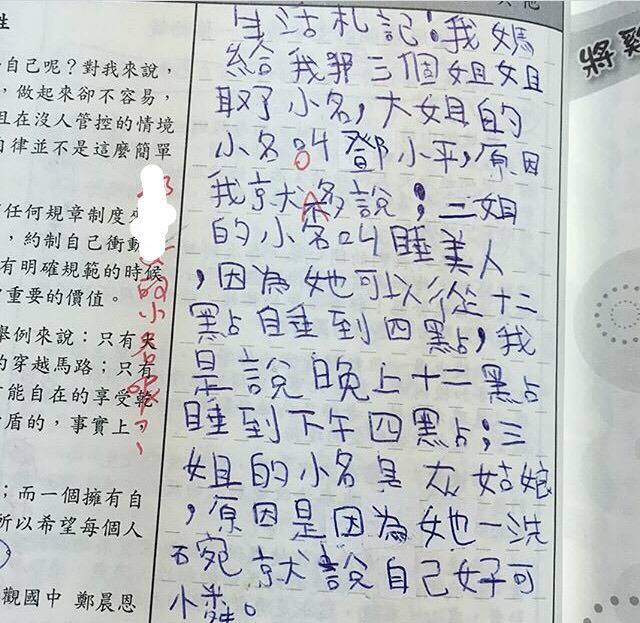 性
自己呢？對我來說，
，做起來卻不容易，
且在沒人管控的情境
自律並不是這麼簡單
任何規章制度
，約制自己衝動
有明確規範的時候
重要的價值。
舉例來說：只有
的穿越馬路；只有
能自在的享受乾
盾的，事實上，
；而一個擁有自
所以希望每個人
觀國中 鄭晨恩
的小名
生活札記：我媽
給我那三個姐姐
取了小名，大姐的
小名叫鄧小平，原因
我就不多說；二姐
的小名叫睡美人
，因為她可以從十二
點睡到四點，我
是說晚上十二點
睡到下午四點；三
姐的小名是灰姑娘
，原因是因為她一洗
碗就說自己好可
憐。
將